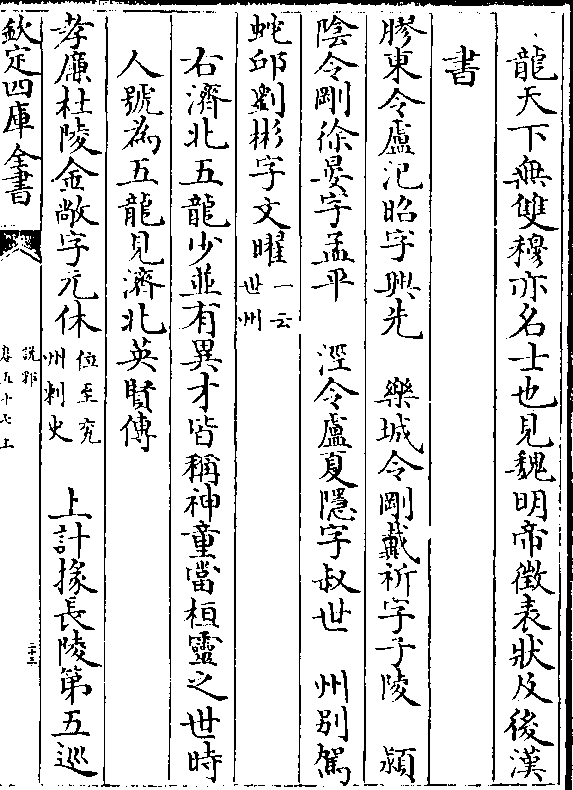 龍天下無雙穆亦名士也見魏明帝徵表狀及後漢
書
膠東令盧汜昭字興先　樂城令剛戴祈字子陵　潁
陰令剛徐晏字孟平　涇令盧夏隱字叔世　州别駕
蛇邱劉彬字文曜一云世州
右濟北五龍少並有異才皆稱神童當桓靈之世時
人號為五龍見濟北英賢傳
孝廉杜陵金敞字元休位至兖州刺史　上計掾長陵第五巡
欽定四庫全書
說郛
卷五十七上
二十三